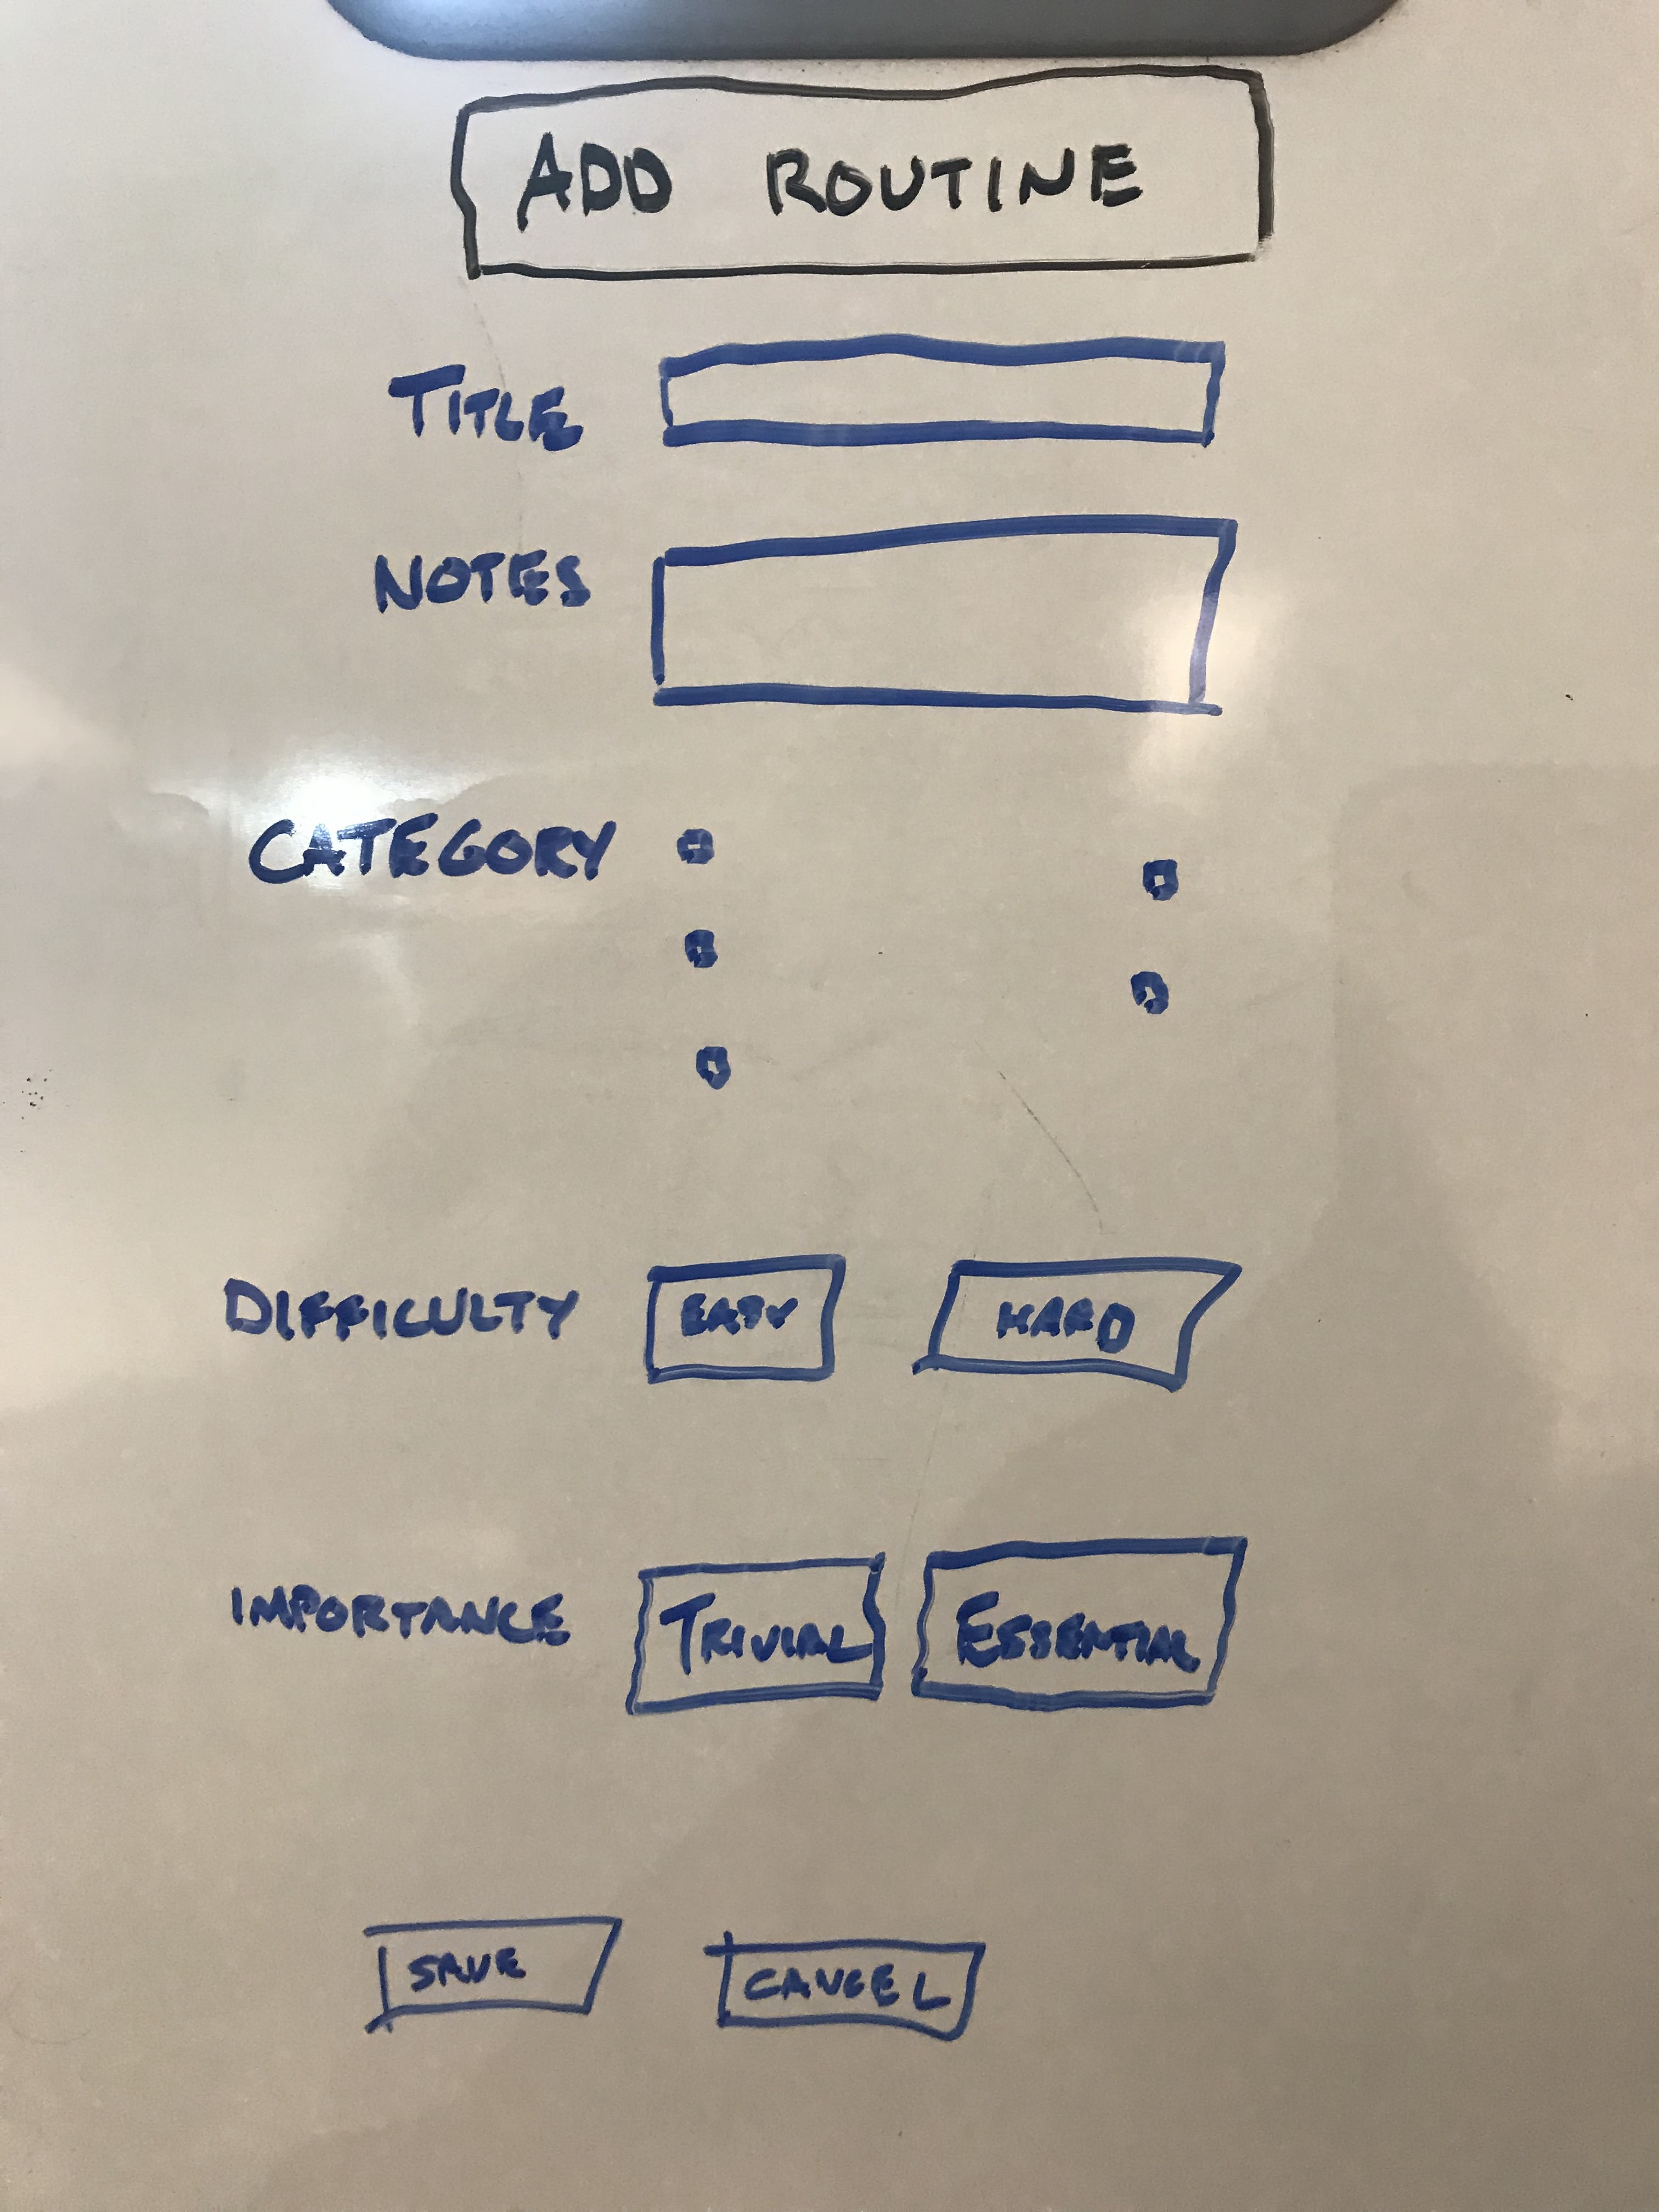 ADD ROUTINE
TITLE
NOTES
CATEGORY
DIFFICULTY EASY HARD
IMPORTANCE TRIVIAL ESSENTIAL
SAVE CANCEL